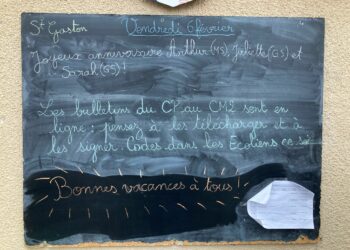 St Gaston
Vendredi 6 février
Joyeux anniversaire Arthur (MS), Juliette (GS) et
Sarah (GS)!
Les bulletins du CP au CM2 sont en
ligne : pensez à les télécharger et à
les signer. Codes dans les Ecoliens ce soir
Bonnes vacances à tous!